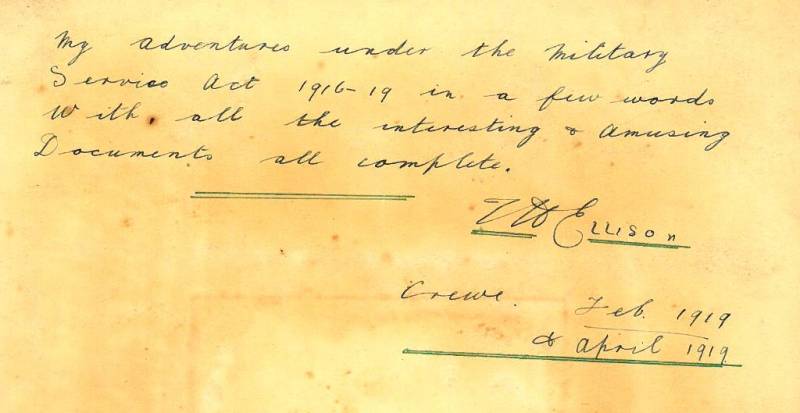 My adventures under the Military
Service Act 1916-19 in a few words
With all the interesting & Amusing
Documents all complete.
Ellison
Crewe. Feb. 1919
& April 1919